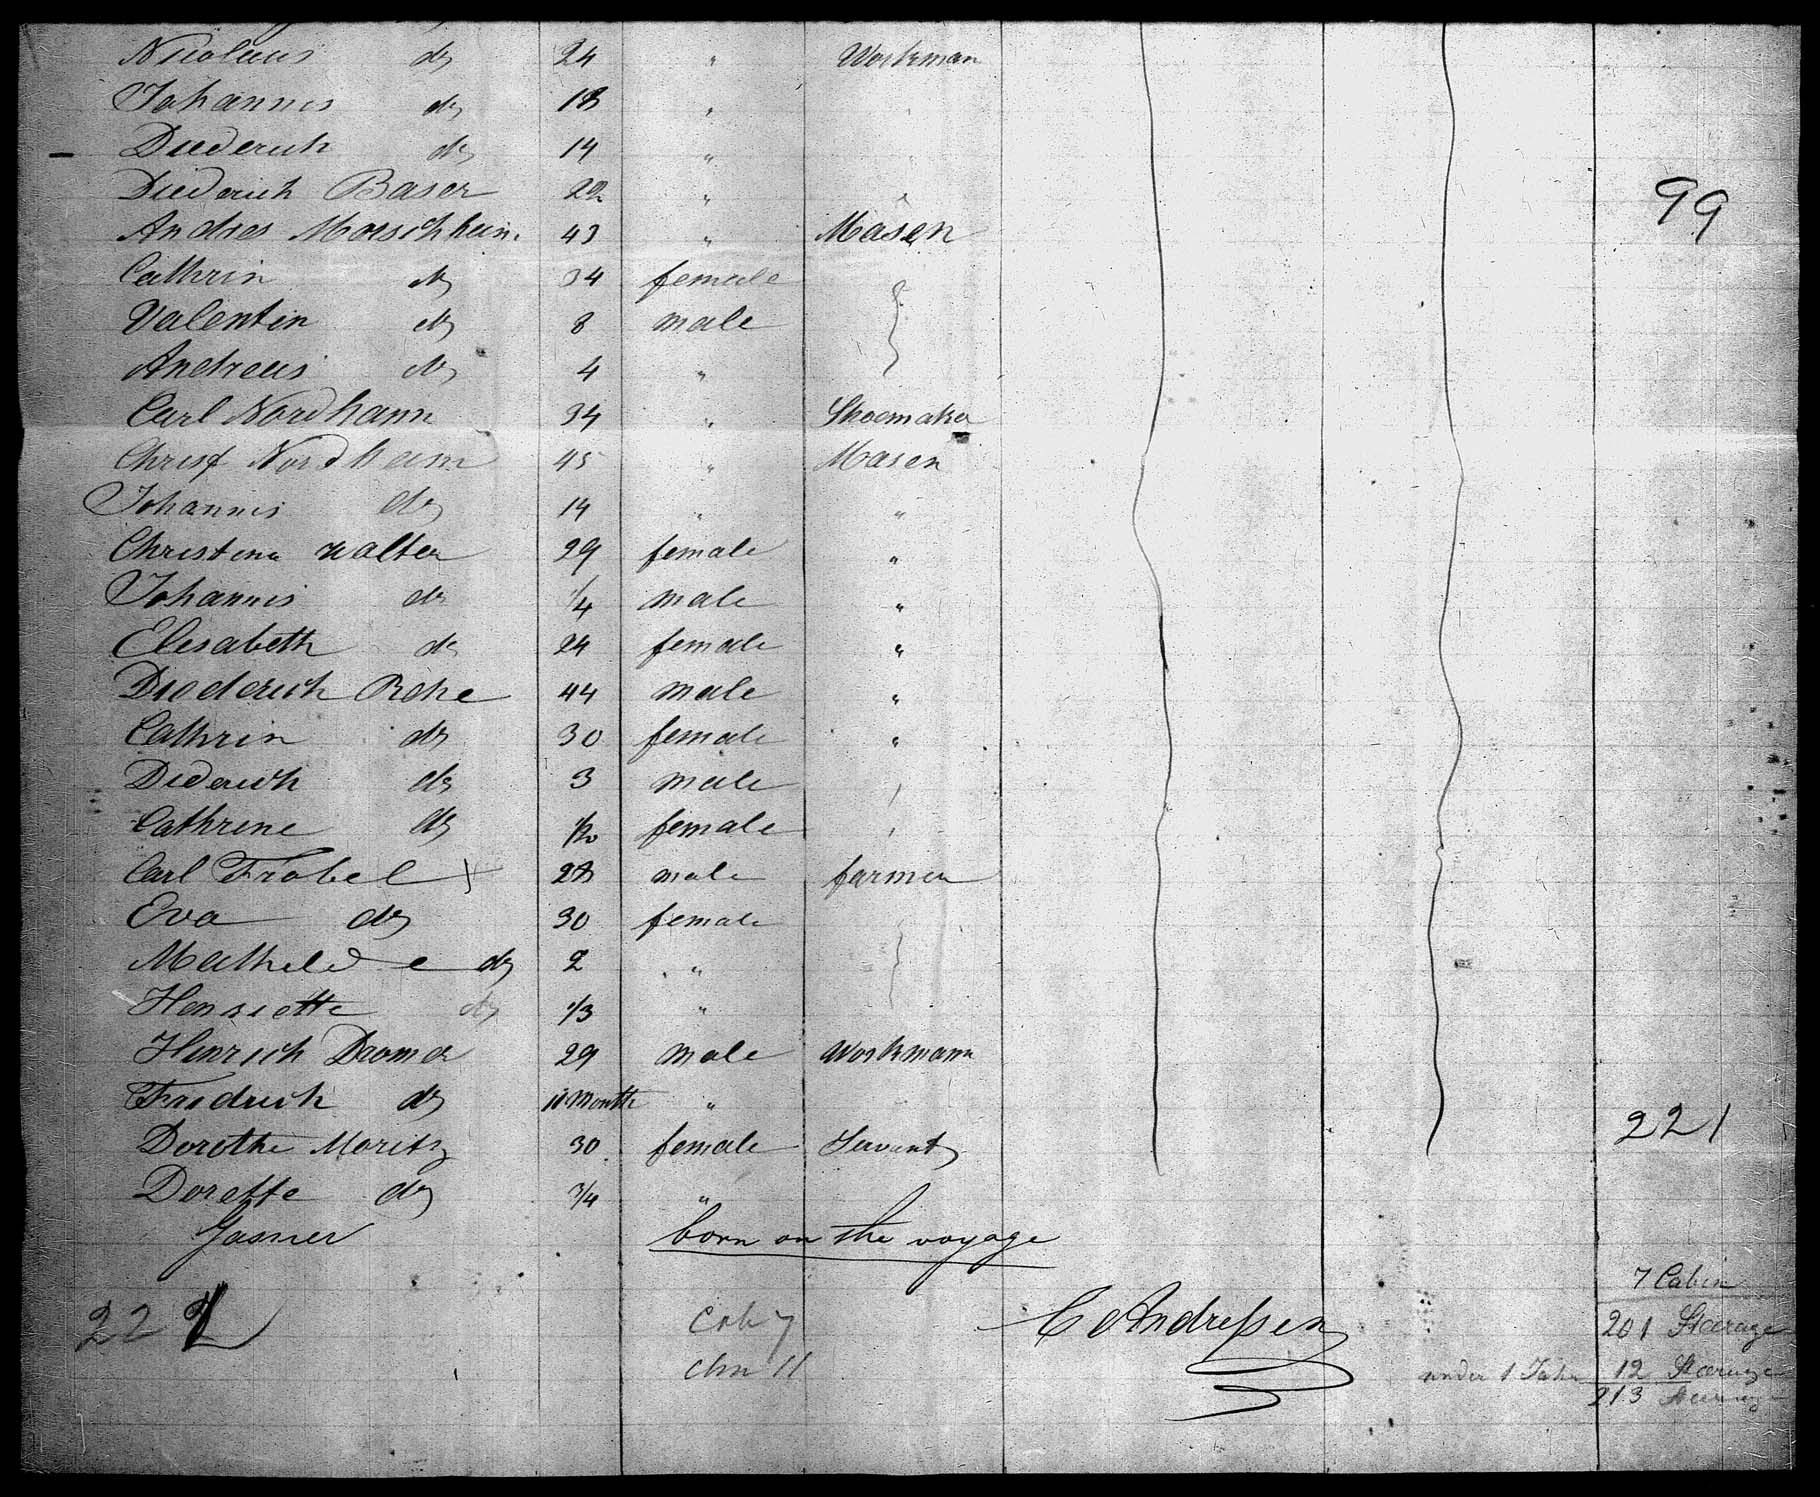 Nicolaus do 24 " Workman
Johannis do 18 "
Diederich do 14 "
Diederich Baser 22 "
99
Andres Morschheim 43 " Masen
Cathrin do 34 female
Valentin do 8 male
Andreas do 4 "
Carl Nordhann 34 " Shoemaker
Christ Nordheim 45 " Masen
Johannis do 14 " "
Christina Walter 29 female "
Johannis do 1/4 male "
Elisabeth do 24 female "
Diederich Rehe 44 male "
Cathrin do 30 female "
Diderich do 3 male
Cathrine do female
Carl Frobel 28 male farmer
Eva do 30 female
Mathilde do 2 "
Henriette do 1/3 "
Hinrich Dromer 29 male Workmann
Friedrich do 11 Month "
221
Dorothe Moritz 30 female Servant
Dorette do 3/4 "
born on the voyage
7 Cabin
222 Cab 7 C Andreßen 201 Stearage
11 under 1 Jahr 12 Stearage
213 Stearage